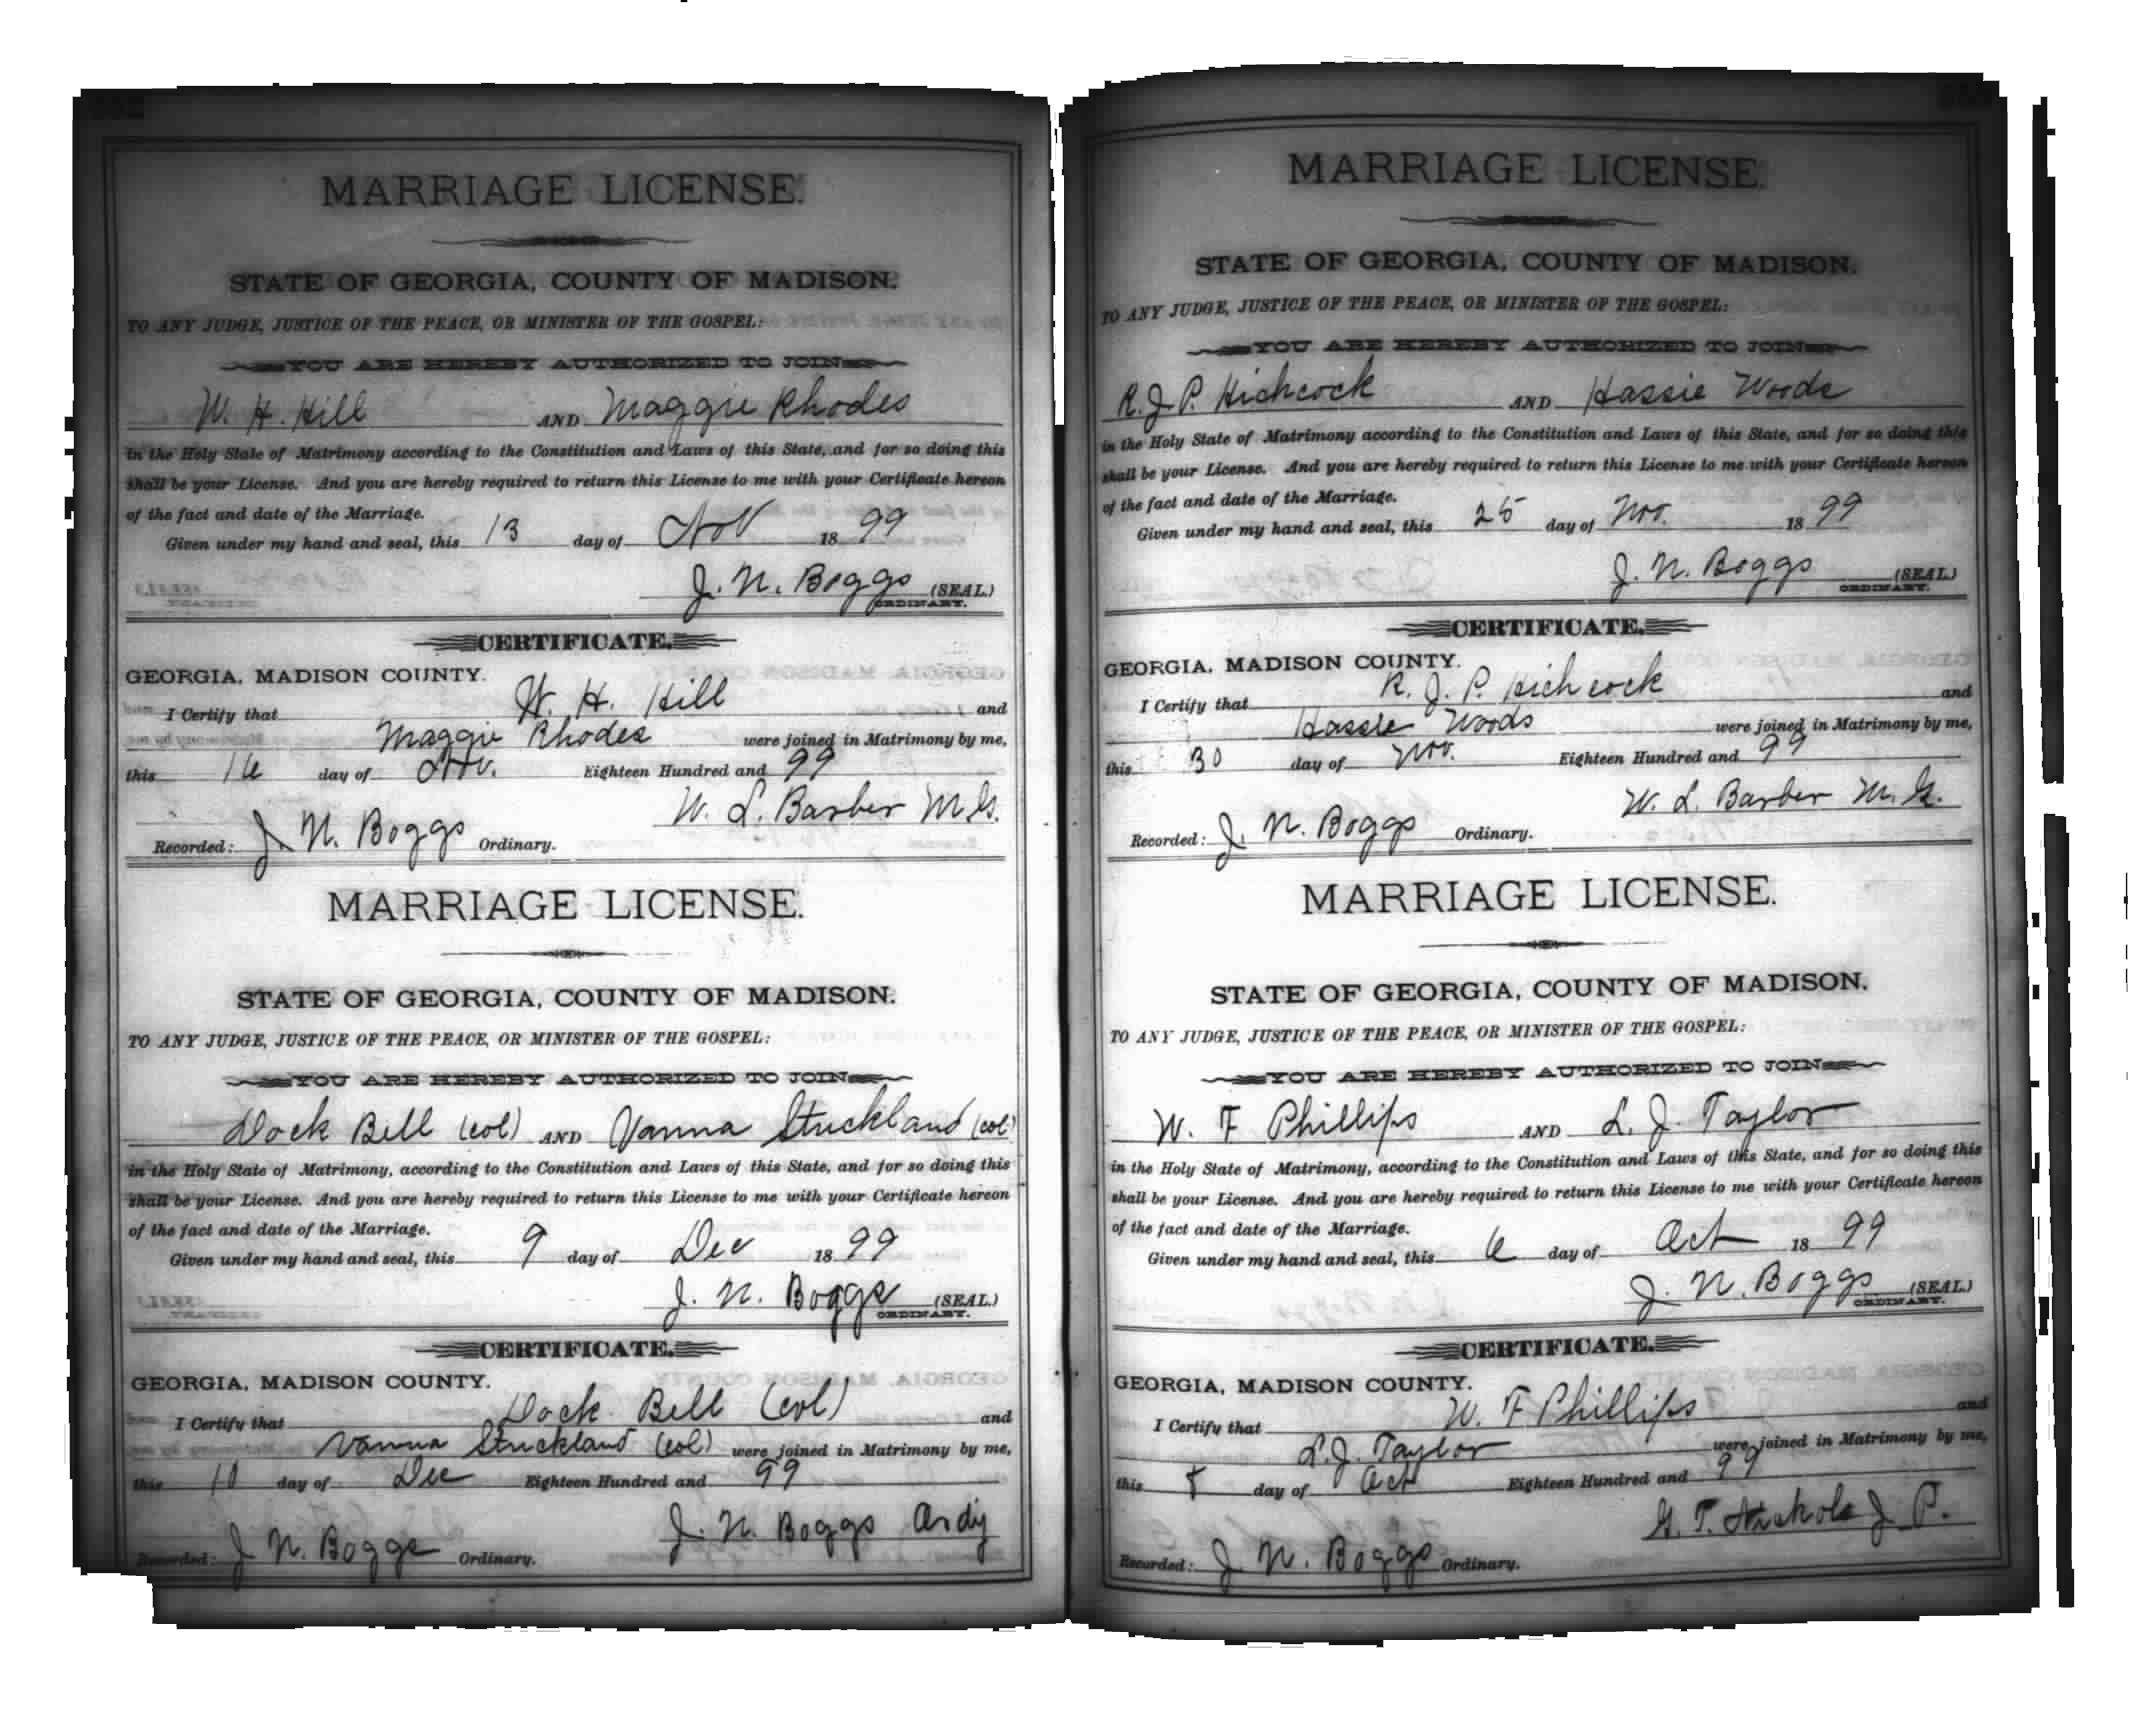 MARRIAGE LICENSE.
STATE OF GEORGIA, COUNTY OF MADISON.
TO ANY JUDGE, JUSTICE OF THE PEACE, OR MINISTER OF THE GOSPEL:
YOU ARE HEREBY AUTHORIZED TO JOIN
W. H. Hill AND Maggie Rhodes
in the Holy State of Matrimony according to the Constitution and Laws of this State, and for so doing this
shall be your License. And you are hereby required to return this License to me with your Certificate hereon
of the fact and date of the Marriage.
Given under my hand and seal, this 13 day of Nov 1899
J. N. Boggs (SEAL.)
ORDINARY.
CERTIFICATE.
GEORGIA, MADISON COUNTY.
I Certify that W. H. Hill and
Maggie Rhodes were joined in Matrimony by me,
this 16 day of Nov. Eighteen Hundred and 99
W. L. Barber M.G.
Recorded: J. N. Boggs Ordinary.
MARRIAGE LICENSE.
STATE OF GEORGIA, COUNTY OF MADISON.
TO ANY JUDGE, JUSTICE OF THE PEACE, OR MINISTER OF THE GOSPEL:
YOU ARE HEREBY AUTHORIZED TO JOIN
Dock Bell (col) AND Vanna Strickland (col)
in the Holy State of Matrimony, according to the Constitution and Laws of this State, and for so doing this
shall be your License. And you are hereby required to return this License to me with your Certificate hereon
of the fact and date of the Marriage.
Given under my hand and seal, this 9 day of Dec 1899
J. N. Boggs (SEAL.)
ORDINARY.
CERTIFICATE.
GEORGIA, MADISON COUNTY.
I Certify that Dock Bell (col) and
Vanna Strickland (col) were joined in Matrimony by me,
this 10 day of Dec Eighteen Hundred and 99
J. N. Boggs Ordy
Recorded: J N. Boggs Ordinary.
MARRIAGE LICENSE.
STATE OF GEORGIA, COUNTY OF MADISON.
TO ANY JUDGE, JUSTICE OF THE PEACE, OR MINISTER OF THE GOSPEL:
YOU ARE HEREBY AUTHORIZED TO JOIN
R. J. P. Hichcock AND Hassie Woods
in the Holy State of Matrimony according to the Constitution and Laws of this State, and for so doing this
shall be your License. And you are hereby required to return this License to me with your Certificate hereon
of the fact and date of the Marriage.
Given under my hand and seal, this 25 day of Nov. 1899
J. N. Boggs (SEAL.)
ORDINARY.
CERTIFICATE.
GEORGIA, MADISON COUNTY.
I Certify that R. J. P. Hichcock and
Hassie Woods were joined in Matrimony by me,
this 30 day of Nov. Eighteen Hundred and 99
W. L. Barber M. G.
Recorded: J. N. Boggs Ordinary.
MARRIAGE LICENSE.
STATE OF GEORGIA, COUNTY OF MADISON.
TO ANY JUDGE, JUSTICE OF THE PEACE, OR MINISTER OF THE GOSPEL:
YOU ARE HEREBY AUTHORIZED TO JOIN
W. F Phillips AND L. J. Taylor
in the Holy State of Matrimony, according to the Constitution and Laws of this State, and for so doing this
shall be your License. And you are hereby required to return this License to me with your Certificate hereon
of the fact and date of the Marriage.
Given under my hand and seal, this 6 day of Oct 1899
J. N. Boggs (SEAL.)
ORDINARY.
CERTIFICATE.
GEORGIA, MADISON COUNTY.
I Certify that W. F Phillips and
L. J. Taylor were joined in Matrimony by me,
this 8 day of Oct Eighteen Hundred and 99
G. T. Nichols J P.
Recorded: J N. Boggs Ordinary.